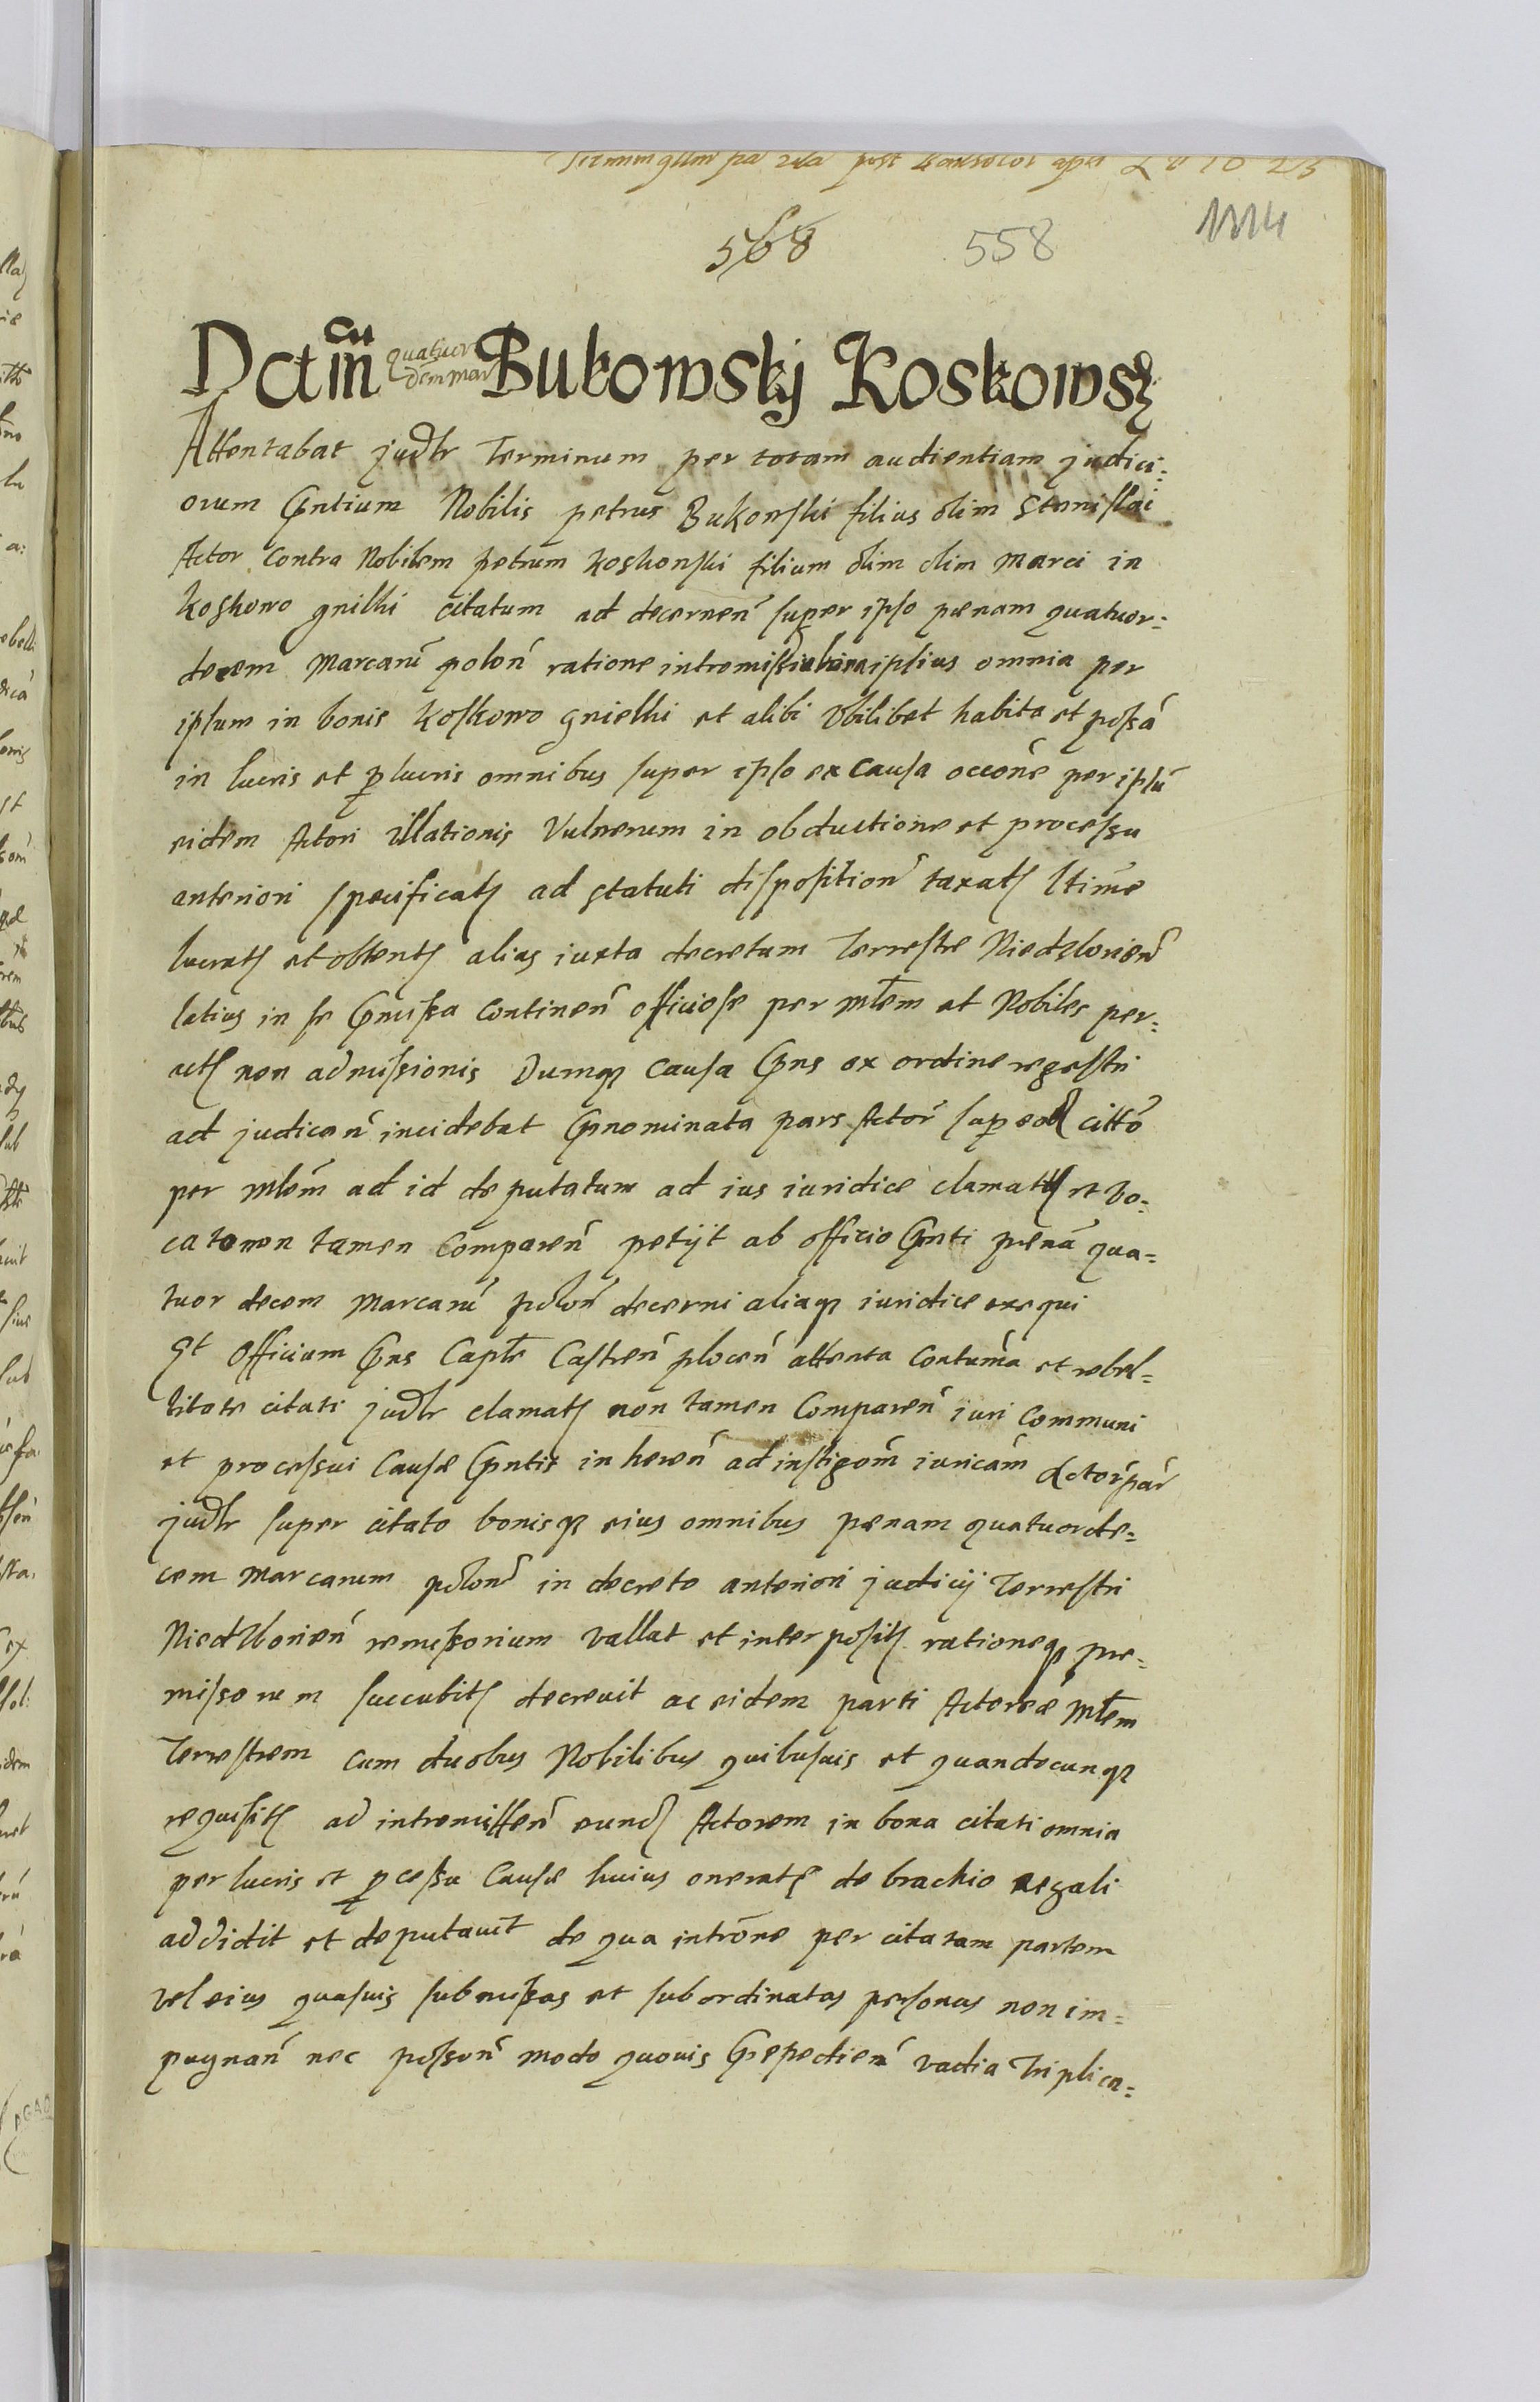 568 558 1114
Dctm̃ cu quatuor
decem mar Bukowskj Koskowsky
Attentabat judlr Terminum per totam audientiam judici:
orum p̃ntium Nobilis petrus Bukowski filius olim Stanislai
Actor Contra Nobilem petrum koskowski filium olim olim Marci in
Koskowo gnilki citatum ad decernen̄ super ipso pænam quatuor:
decem Marcarū polon̄ ratione in bona ipsius omnia per
ipsum in bonis koskowo gnielki et alibi Vbilibet habita et possā
in lucris et ꝑlucris omnibus super ipso ex Causa occōne per ipsū
eidem Actori illationis Vulnerum in obductione et processu
anteriori specificatȝ ad statuti disposition̄ taxatȝ ltime
lucratȝ et obtentȝ alias iuxta decretum Terrestre Niedzborien̄
latius in se p̃missa Continen̄ officiose per Mlem et Nobiles per:
actȝ non admissionis Dumqȝ Causa p̃ns ex ordine regestri
ad judican̄ incidebat p̃nominata pars Actor̄ suꝑ eodȝ citto
per Mlem ad id deputatum ad ius iuridice clamatȝ et vo:
cato non tamen Comparen̄ petijt ab officio p̃nti pænā qua:
tuor decem Marcarū polon̄ decerni aliaqȝ iuridice exequi
Et Officium p̃ns Caplē Castren̄ plocen̄ attenta Contumā et rebel:
litate citati judlr clamatȝ non tamen Comparen̄ iuri Communi
et processui Causæ p̃ntis inheren̄ ad instigōm̄ iuricām Actor̄ par̄
judlr super citato bonisqȝ eius omnibus pænam quatuorde:
cem Marcarum polon̄ in decreto anteriori judicij Terrestri
Niedzborien̄ remissorium Vallat et interpositȝ rationeqȝ præ:
missorum succubitȝ decreuit ac eidem parti Actoreæ Mlem
Terrestrem cum duobus Nobilibus quibusuis et quandocunqȝ
requisitȝ ad intromitten̄ eundȝ Actorem in bona citati omnia
per lucris et ꝑcessu Causæ huius oneratȝ de brachio regali
addidit et deputauit de qua intrōne per citatam partem
vel eius quasuis submissas et subordinatas personas non im:
pugnan̄ nec possōn̄ modo quouis p̃epedien̄ vadia Triplica: